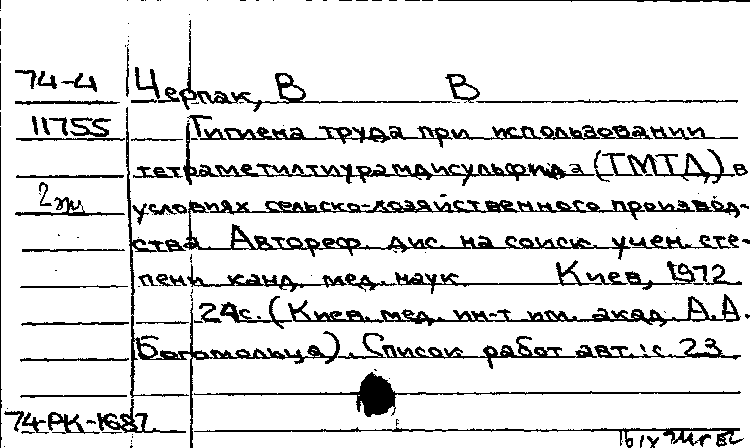 74-4 Черпак, В В
11755 Гигиена труда при использовании
тетраметилтиурамдисульфида (ТМТД) в
2 эк условиях сельско-хозяйственного производ-
ства. Автореф. дис. на соиск. учен. сте-
пени канд. мед. наук. Киев, 1972.
24с. (Киев. мед. ин-т им. акад. А.А.
Богомольца). Список работ авт.: с. 23
74-РК-1687